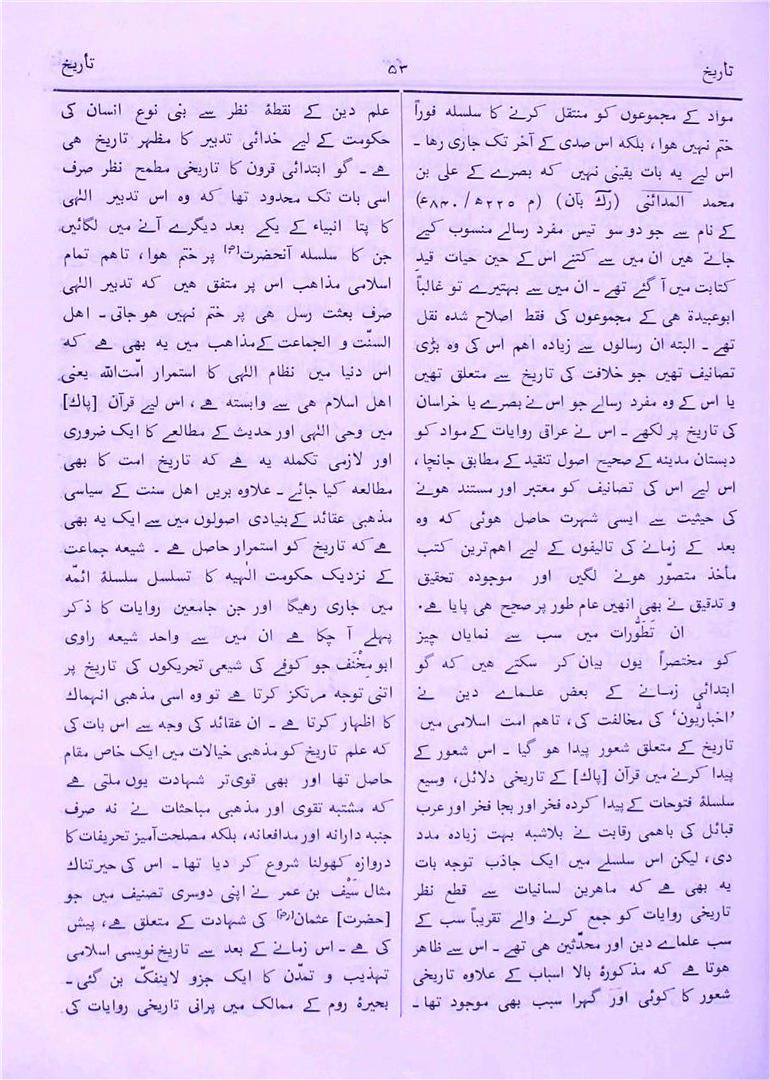 تاریخ ۵۳ تاریخ
مواد کے مجموعوں کو منتقل کرنے کا سلسلہ فوراً
ختم نہیں ہوا، بلکہ اس صدی کے آخر تک جاری رہا ۔
اس لیے یہ بات یقینی نہیں کہ بصرے کے علی بن
محمد المدائنی (رک بآن) (م ۲۲۵ھ/۸۴۰ء)
کے نام سے جو دو سو تیس مفرد رسالے منسوب کیے
جاتے ہیں ان میں سے کتنے اس کے حین حیات قید
کتابت میں آ گئے تھے ۔ ان میں سے بہتیرے تو غالباً
ابوعبیدۃ ہی کے مجموعوں کی فقط اصلاح شدہ نقل
تھے ۔ البتہ ان رسالوں سے زیادہ اہم اس کی وہ بڑی
تصانیف تھیں جو خلافت کی تاریخ سے متعلق تھیں
یا اس کے وہ مفرد رسالے جو اس نے بصرے یا خراسان
کی تاریخ پر لکھے ۔ اس نے عراقی روایات کے مواد کو
دبستان مدینہ کے صحیح اصول تنقید کے مطابق جانچا،
اس لیے اس کی تصانیف کو معتبر اور مستند ہونے
کی حیثیت سے ایسی شہرت حاصل ہوئی کہ وہ
بعد کے زمانے کی تالیفوں کے لیے اہم ترین کتب
مآخذ متصوّر ہونے لگیں اور موجودہ تحقیق
و تدقیق نے بھی انھیں عام طور پر صحیح ہی پایا ہے.
ان تَطَوُّرات میں سب سے نمایاں چیز
کو مختصراً یوں بیان کر سکتے ہیں کہ گو
ابتدائی زمانے کے بعض علماے دین نے
'اخباریّون' کی مخالفت کی، تاہم امت اسلامی میں
تاریخ کے متعلق شعور پیدا ہو گیا ۔ اس شعور کے
پیدا کرنے میں قرآن [پاک] کے تاریخی دلائل، وسیع
سلسلۂ فتوحات کے پیدا کردہ فخر اور بجا فخر اور عرب
قبائل کی باہمی رقابت نے بلاشبہ بہت زیادہ مدد
دی، لیکن اس سلسلے میں ایک جاذب توجہ بات
یہ بھی ہے کہ ماہرین لسانیات سے قطع نظر
تاریخی روایات کو جمع کرنے والے تقریباً سب کے
سب علماے دین اور محدّثین ہی تھے ۔ اس سے ظاہر
ہوتا ہے کہ مذکورۂ بالا اسباب کے علاوہ تاریخی
شعور کا کوئی اور گہرا سبب بھی موجود تھا ۔
علم دین کے نقطۂ نظر سے بنی نوع انسان کی
حکومت کے لیے خدائی تدبیر کا مظہر تاریخ ہی
ہے ۔ گو ابتدائی قرون کا تاریخی مطمح نظر صرف
اسی بات تک محدود تھا کہ وہ اس تدبیر الٰہی
کا پتا انبیاء کے یکے بعد دیگرے آنے میں لگائیں
جن کا سلسلہ آنحضرت[ص] پر ختم ہوا، تاہم تمام
اسلامی مذاہب اس پر متفق ہیں کہ تدبیر الٰہی
صرف بعثت رسل ہی پر ختم نہیں ہو جاتی ۔ اہل
السنّت و الجماعت کے مذاہب میں یہ بھی ہے کہ
اس دنیا میں نظام الٰہی کا استمرار امّت اللہ یعنی
اہل اسلام ہی سے وابستہ ہے، اس لیے قرآن [پاک]
میں وحی الٰہی اور حدیث کے مطالعے کا ایک ضروری
اور لازمی تکملہ یہ ہے کہ تاریخ امت کا بھی
مطالعہ کیا جائے ۔ علاوہ بریں اہل سنت کے سیاسی
مذہبی عقائد کے بنیادی اصولوں میں سے ایک یہ بھی
ہے کہ تاریخ کو استمرار حاصل ہے ۔ شیعہ جماعت
کے نزدیک حکومت الٰہیہ کا تسلسل سلسلۂ ائمّہ
میں جاری رہیگا اور جن جامعین روایات کا ذکر
پہلے آ چکا ہے ان میں سے واحد شیعہ راوی
ابو مِخْنَف جو کوفے کی شیعی تحریکوں کی تاریخ پر
اتنی توجہ مرتکز کرتا ہے تو وہ اسی مذہبی انہماک
کا اظہار کرتا ہے ۔ ان عقائد کی وجہ سے اس بات کی
کہ علم تاریخ کو مذہبی خیالات میں ایک خاص مقام
حاصل تھا اور بھی قوی تر شہادت یوں ملتی ہے
کہ مشتبہ تقوی اور مذہبی مباحثات نے نہ صرف
جنبہ دارانہ اور مدافعانہ، بلکہ مصلحت آمیز تحریفات کا
دروازہ کھولنا شروع کر دیا تھا ۔ اس کی حیرتناک
مثال سَیْف بن عمر نے اپنی دوسری تصنیف میں جو
[حضرت] عثمان[رض] کی شہادت کے متعلق ہے، پیش
کی ہے ۔ اس زمانے کے بعد سے تاریخ نویسی اسلامی
تہذیب و تمدّن کا ایک جزو لاینفکّ بن گئی ۔
بحیرۂ روم کے ممالک میں پرانی تاریخی روایات کی